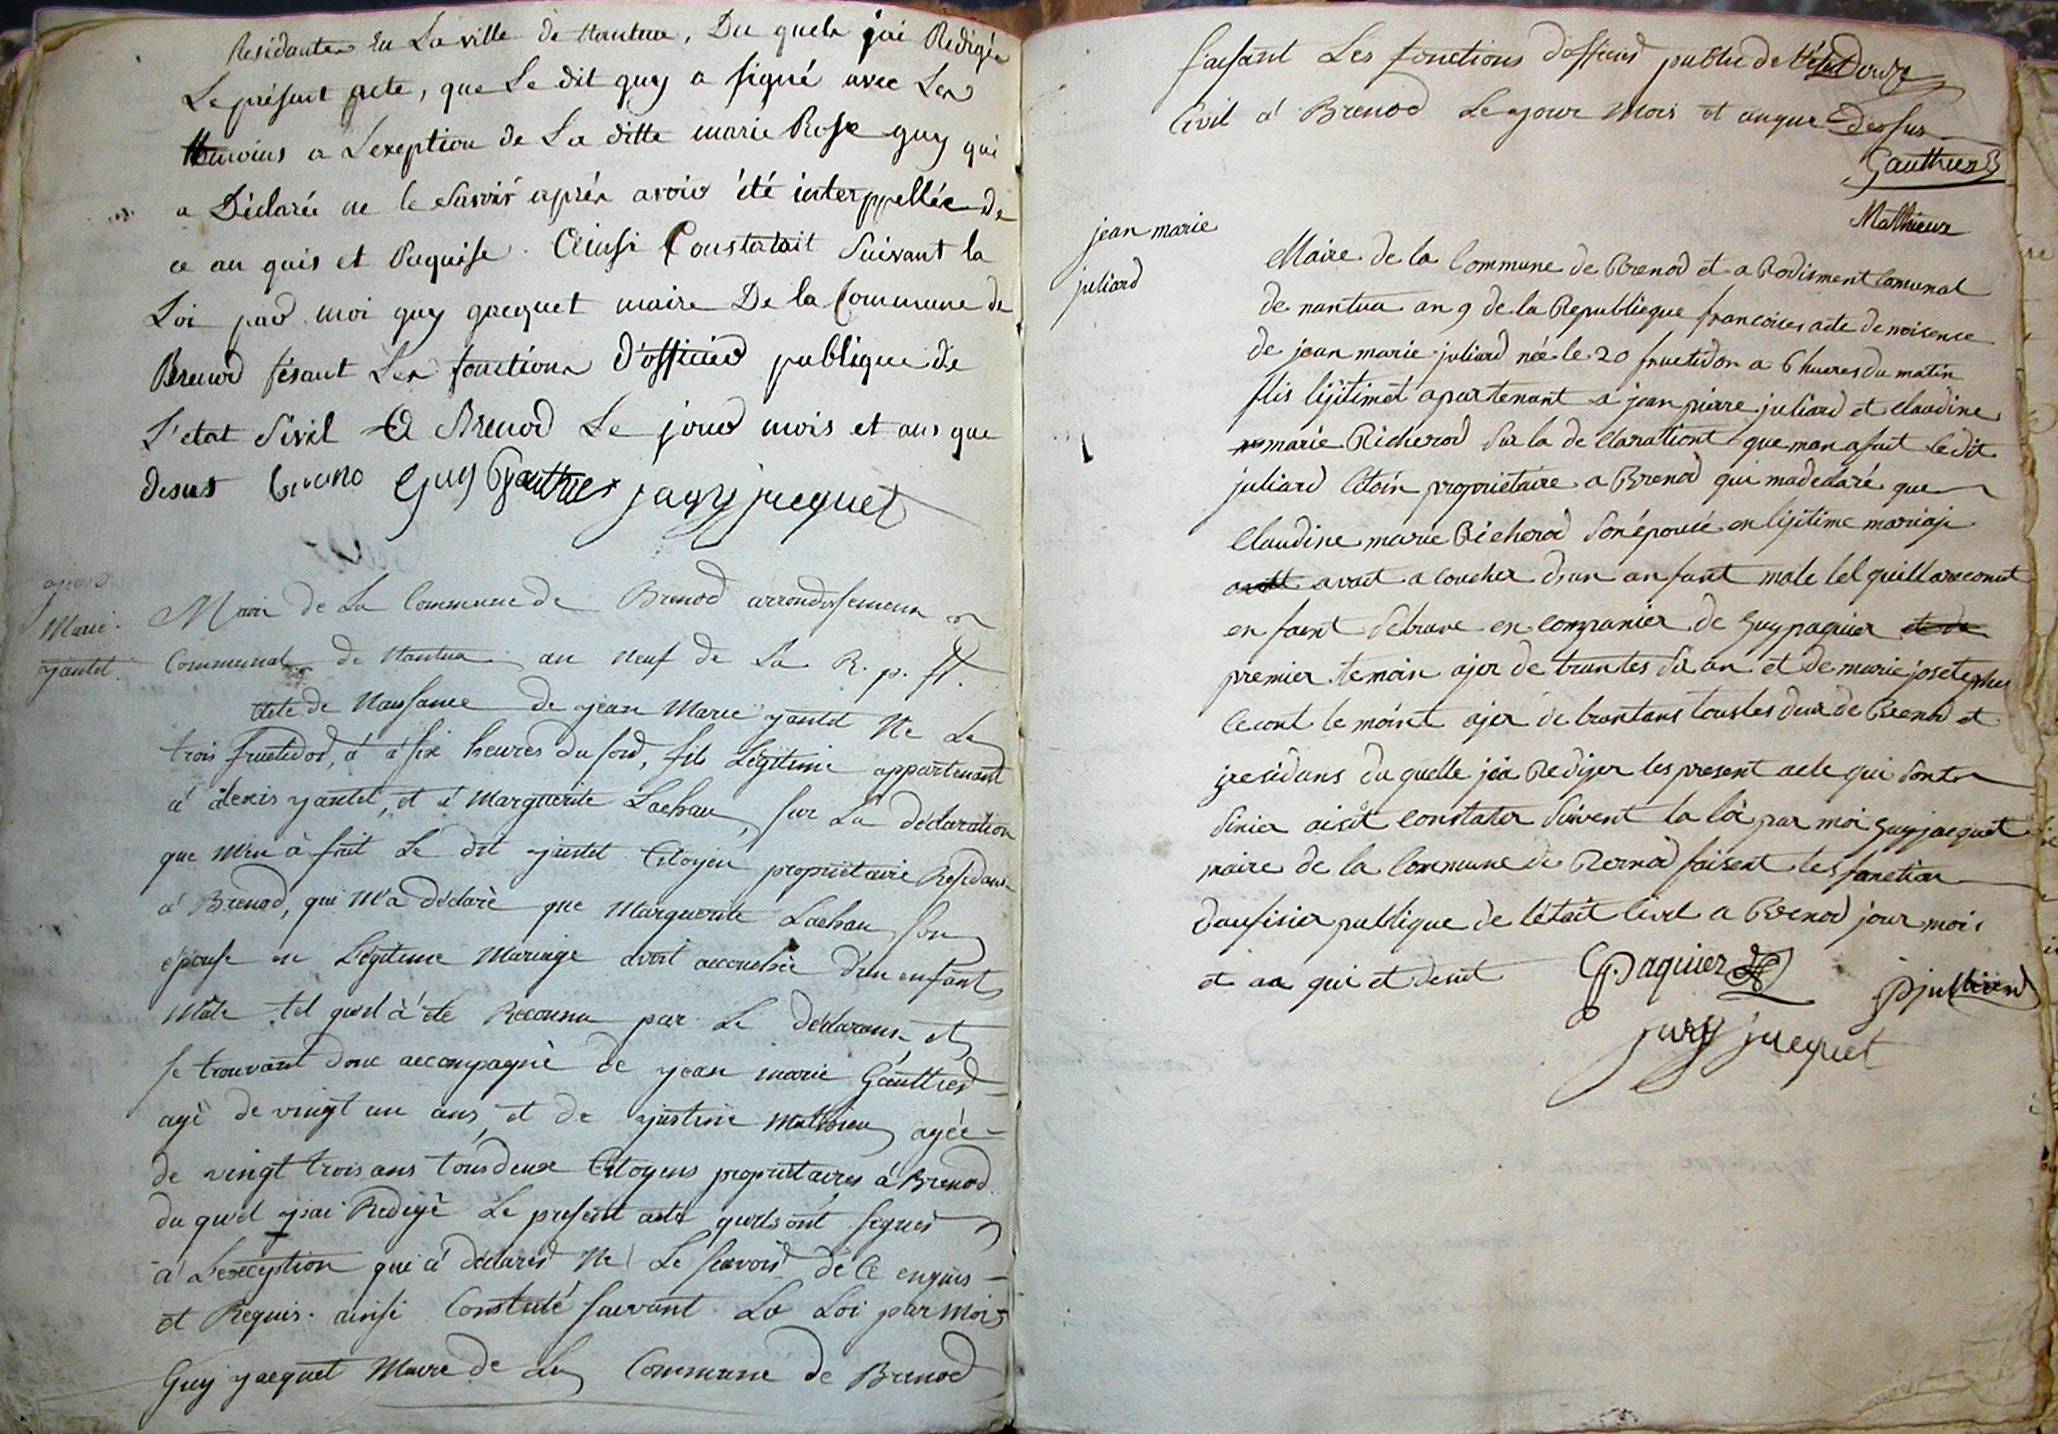 Residantes En La ville de Nantua, Du quels jai Redigé
Le présent acte, que Le dit guy a signé avec Les
témoins a Lexeption de La ditte marie Rose guy qui
a Déclarée ne le Savoir aprés avoir été interppellée de
ce an quis et Requise. Ainsi Constatait Suivant la
Loi par moi guy jacquet maire De la Commune de
Brenod fésant Les fonctions d'officier publique de
L'etat Sivil A Brenod Le jour mois et ans que
desus Guy Gauthier jaquy jacquet
Marie
yantet
Mairie de La Commune de Brenod arrondissement
Communal de Nantua an Neuf de La R. p. ff.
Acte de Naissance de jean Marie yantet Né Le
trois fructidor, à six heures du soir, fils Légitime appartenant
à alexis yantet, et à Marguerite Lachau, sur La déclaration
que m'en à fait Le dit yantet Citoyen propriétaire Résidant
à Brénod, qui m'a déclaré que Marguerite Lachau Son
épouse en Légitime Mariage avoit accouchée d'un enfant
Mâle tel qu'il à été Reconnu par Le déclarant, et
se trouvant donc accompagné de jean marie Gauthier
agé de vingt un ans, et de justine Mathieu agée
de vingt trois ans tous deux Citoyens propriétaires à Brenod
du quel j'ai Redigé Le présent acte qu'ils ont signés
à L'exception qui à déclaré Ne Le scavoir de Ce enquis
et Requis. ainsi Constaté suivant La Loi par Moi
Guy yacquet Maire de La Commune de Brenod
faisant Les fonctions d'officier public de l'état
Civil à Brenod Le jour Mois et an que Dessus
Gauthier
Mathieux
jean marie
juliard
Maire de la Commune de Brenod et a Rodisment Comunal
de nantua an 9 de la Republieque francoises acte de noisence
de jean marie juliard née le 20 fructidor a 6 hueres du matin
flis lijitimet apartenant a jean pierre juliard et claudine
marie Richerod sur la de clarationt que man a fait le dit
juliard Citoin propriétaire a Brenod qui madeclaré que
Claudine marie Richerod son épouse en lijitime mariaje
avait a coucher dun anfant male tel quill a reconut
en faent se trouve en companier de guy paquier
premier temoin ajer de trantes six an et de marie josetephes
lecont te moint ajer de trantans toustes deux de Brenod et
residans du quelle jéa Redijer les present acte qui sont
sinier aisit constater suivent la loi par moi guy jacquet
maire de la Commune de Brenod faisent les fonction
daufisier publique de létait civil a Brenod jour mois
et an qui et desut GPaquier Jpjulliard
jaquy jacquet